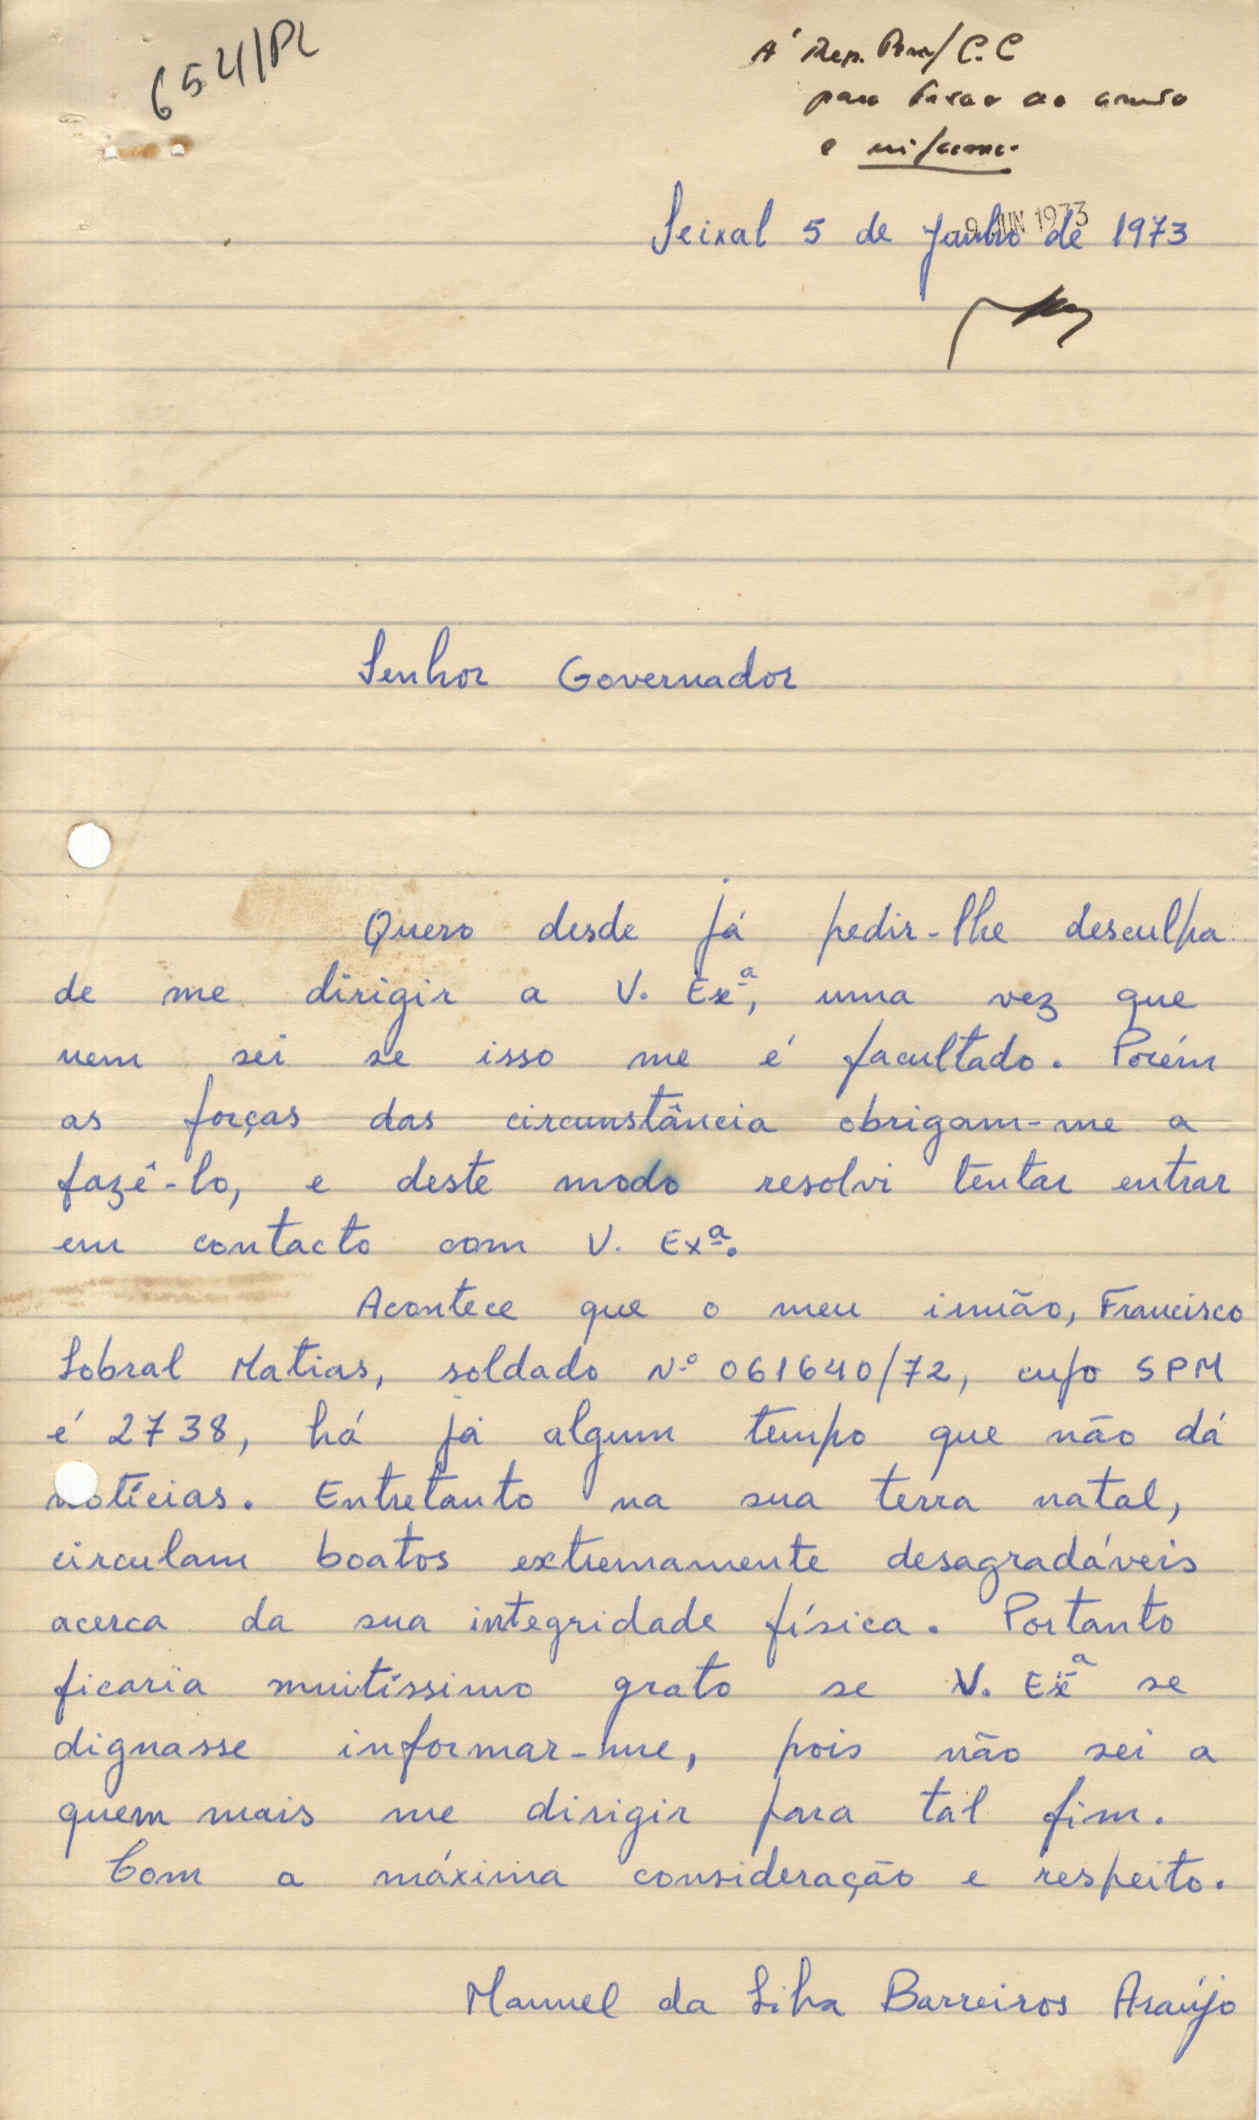 654/PL
À Rep. / C.C
para
e
Seixal 5 de Junho de 1973
9 JUN 1973
Senhor Governador
Quero desde já pedir-lhe desculpa
de me dirigir a V. Exª, uma vez que
nem sei se isso me é facultado. Porém
as forças das circunstância obrigam-me a
fazê-lo, e deste modo resolvi tentar entrar
em contacto com V. Exª.
Acontece que o meu irmão, Francisco
Sobral Matias, soldado Nº 061640/72, cujo SPM
é 2738, há já algum tempo que não dá
notícias. Entretanto na sua terra natal,
circulam boatos extremamente desagradáveis
acerca da sua integridade física. Portanto
ficaria muitíssimo grato se V. Exª se
dignasse informar-me, pois não sei a
quem mais me dirigir para tal fim.
Com a máxima consideração e respeito.
Manuel da Silva Barreiros Araújo